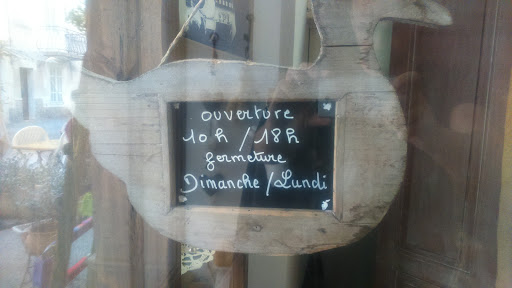 ouverture
10h / 18h
fermeture
Dimanche / Lundi